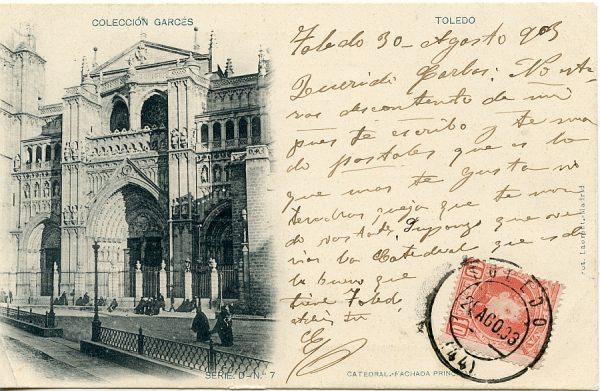 COLECCIÓN GARCÉS
TOLEDO
Toledo 30 - Agosto 903
Querido Carlos: No esta-
ras descontento de mi
pues te escribo y te man
do postales que es lo
que mas te gusta no
tendras queja que te man
do vistas. Supongo que
la Catedral que es de
lo bueno que
tiene Toledo
SERIE. D-N.º 7
CATEDRAL.-FACHADA PRINC
Fot. Laurent.-Madrid
TOLEDO
AGO 03
(44)